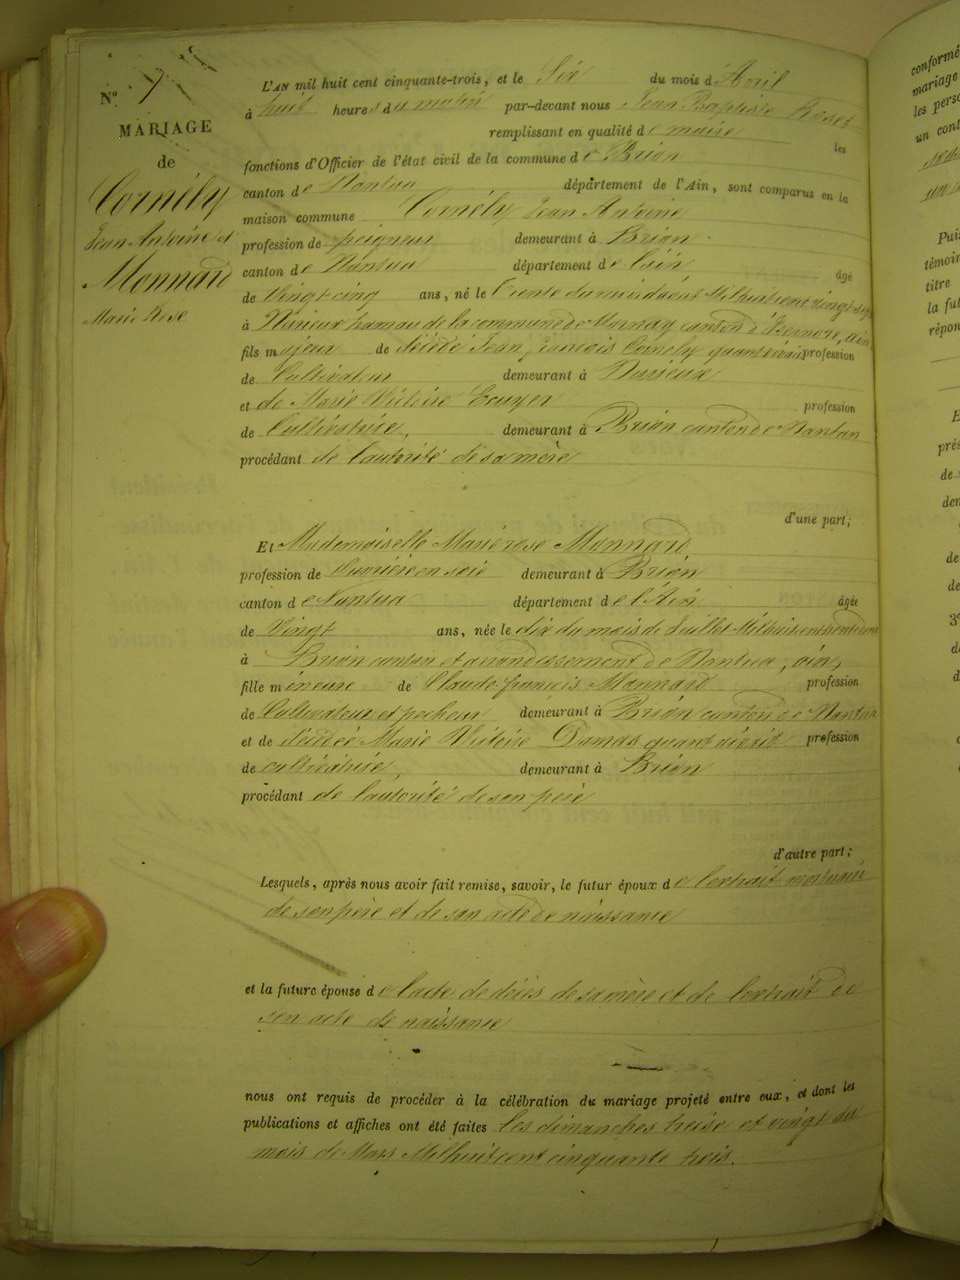 N° 7
MARIAGE
de
Cornély
Jean Antoine et
Monnard
Marie Rose
L'AN mil huit cent cinquante-trois, et le Six du mois d'Avril
à huit heures du matin par-devant nous Jean Baptiste
remplissant en qualité de maire les
fonctions d'Officier de l'état civil de la commune de Brion
canton de Nantua département de l'Ain, sont comparus en la
maison commune Cornély Jean Antoine
profession de peigneur demeurant à Brion
canton de Nantua département de l'ain âgé
de Vingt cinq ans, né le trente du mois d'aout Mil huit cent vingt sept
à Nurieux hameau de la commune de Mornay canton d'Izernore, ain,
fils majeur de décédé Jean françois Cornély quant vivait profession
de Cultivateur demeurant à Nurieux
et de Marie Victoire Ecuyer profession
de Cultivatrice, demeurant à Brion canton de Nantua
procédant de l'autorité de sa mère
d'une part;
Et Mademoiselle Marie rose Monnard
profession de Ouvrière en soie demeurant à Brion
canton de Nantua département de l'Ain âgée
de Vingt ans, née le dix du mois de Juillet Mil huit cent trente deux
à Brion canton et arrondissement de Nantua, ain,
fille mineure de Claude françois Monnard profession
de Cultivateur et pecheur demeurant à Brion canton de Nantua
et de décédée Marie Victoire Damas quant vivait profession
de cultivatrice, demeurant à Brion
procédant de l'autorité de son père
d'autre part;
Lesquels, après nous avoir fait remise, savoir, le futur époux de l'extrait mortuaire
de son père et de son acte de naissance
et la future épouse de l'acte de décès de sa mère et de l'extrait de
son acte de naissance
nous ont requis de procéder à la célébration du mariage projeté entre eux, et dont les
publications et affiches ont été faites les dimanches treize et vingt du
mois de Mars Mil huit cent cinquante trois.
conformé
mariage
les perso
un cont
Puis
témoin
titre
la fut
répon